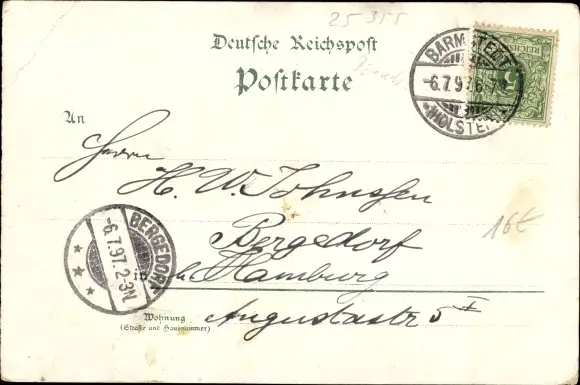 25355
Deutsche Reichspost
Postkarte
BARMSTEDT
-6.7.97. 6-7
(HOLSTEIN)
REICHSPOST
5
An
Herrn
H. W. Johnssen
Bergedorf
in b. Hamburg
Augustastr 5 II
BERGEDORF
-6.7.97. 2-3N
16€
Wohnung
(Straße und Hausnummer)